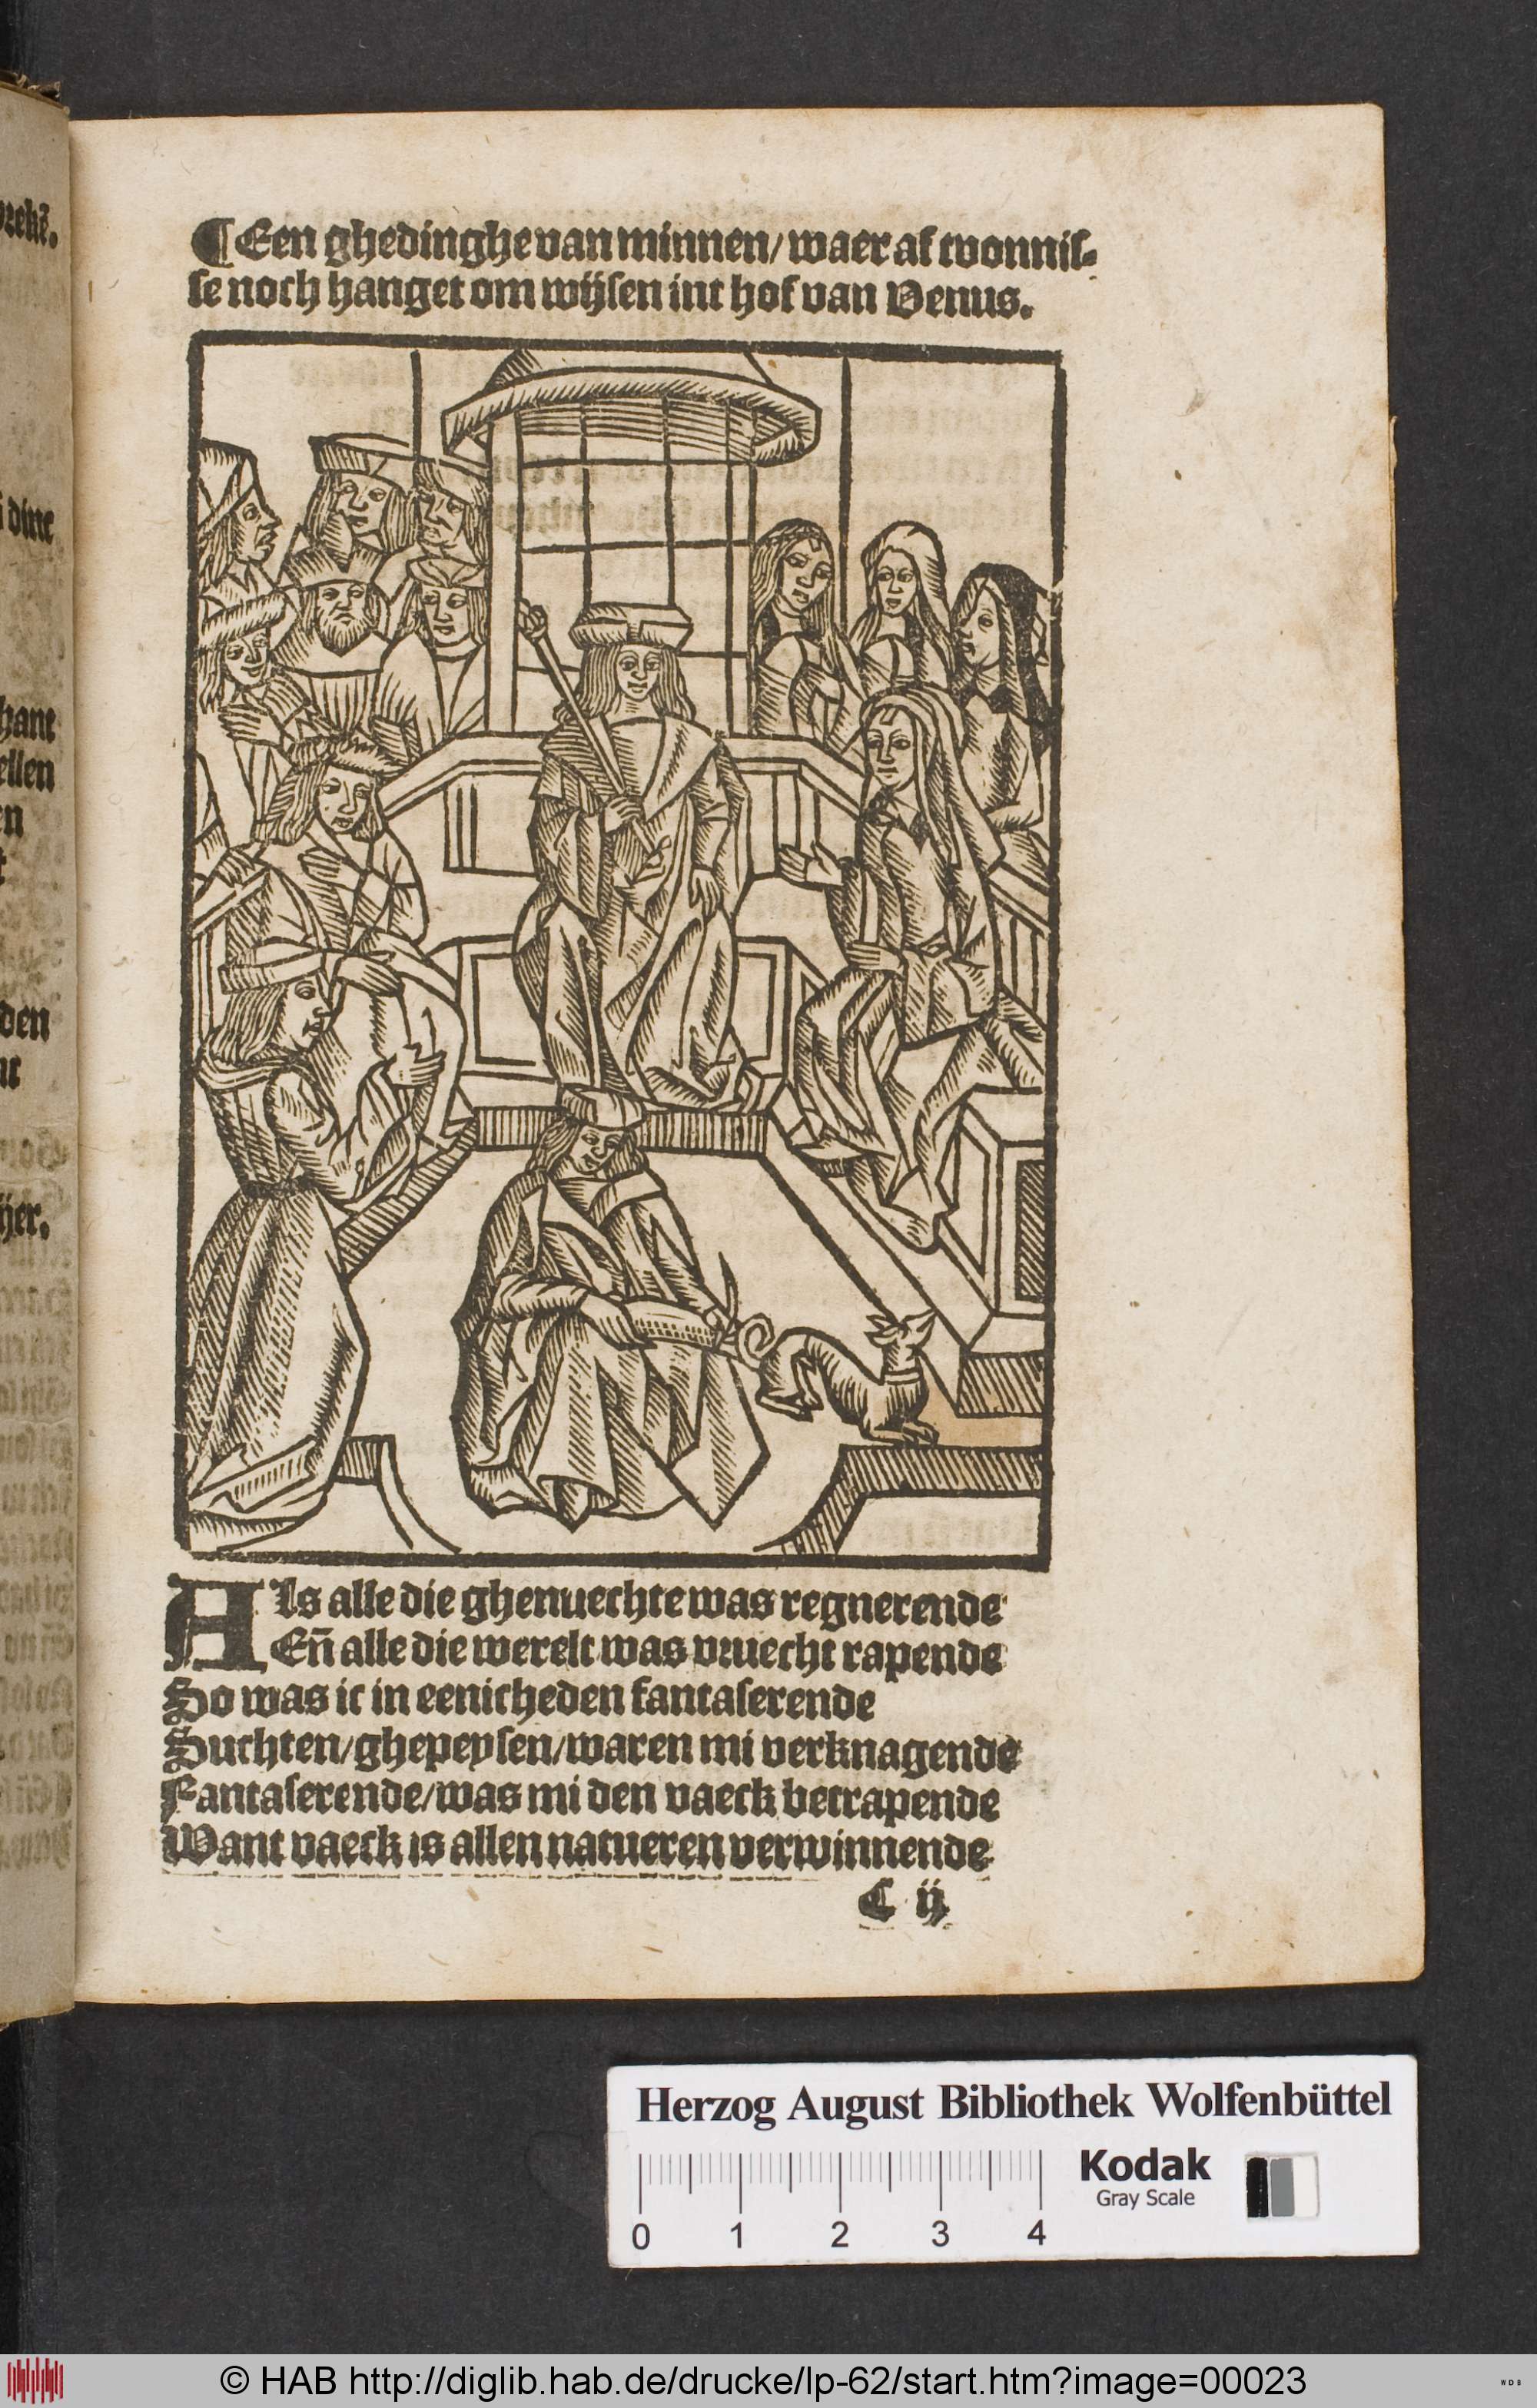 reke̅.
dinc
hant
ellen
en
t
den
nt
ijer.
¶Een ghedinghe van minnen/ waer af tvonnis-
se noch hanget om wijsen int hof van Venus.
Als alle die ghenuechte was regnerende
En̅ alle die werelt was vruecht rapende
So was ic in eenicheden fantaserende
Suchten/ghepeysen/waren mi verknagende
Fantaserende/was mi den vaeck betrapende
Want vaeck is allen natueren verwinnende
C ij
Herzog August Bibliothek Wolfenbüttel
Kodak
Gray Scale
0 1 2 3 4
© HAB http://diglib.hab.de/drucke/lp-62/start.htm?image=00023
WDB